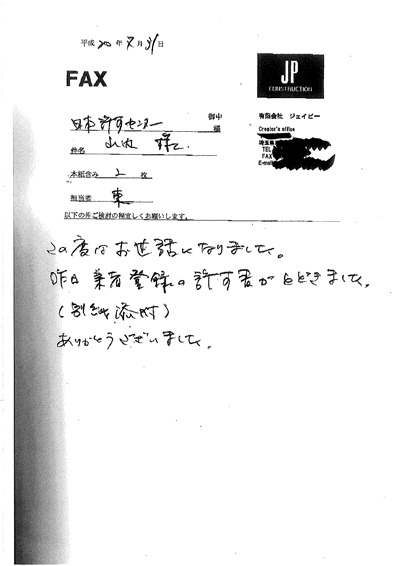 平成 20 年 8月 31日
FAX
JP
CONSTRUCTION
日本許可センター 御中
山内 様
件名
有限会社 ジェイピー
Creator's office
埼玉県
TEL
FAX
E-mail
本紙含み 2 枚
担当者 東
以下の件ご検討の程宜しくお願いします。
この度はお世話になりました。
昨日 業者登録の許可書がとどきました。
(別紙添付)
ありがとうございました。